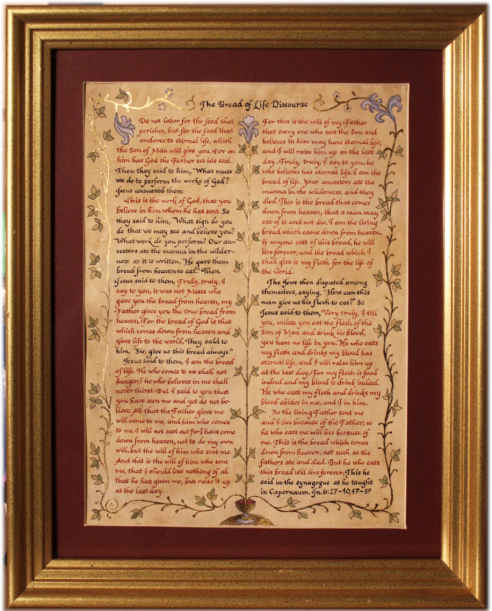 The Bread of Life Discourse
Do not labor for the food that
perishes, but for the food that
endures to eternal life, which
the Son of Man will give you. For on
him has God the Father set his seal.
Then they said to him, "What must
we do to perform the works of God?
Jesus answered them:
This is the work of God, that you
believe in whom he has sent. So
they said to him, "What sign do
you do that we may see and believe you?
What work do you perform? Our an-
cestors ate the manna in the wilder-
ness as it is written, "He gave them
bread from heaven to eat." Then
Jesus said to them, Truly, truly, I
say to you, it was not Moses who
gave you the bread from heaven, my
Father gives you the true bread from
heaven. For the bread of God is that
which comes down from heaven and
gives life to the world. They said to
him, "Sir, give us this bread always."
Jesus said to them, I am the bread
of life. He who comes to me shall not
hunger; he who believes in me shall
never thirst. But I said to you that
you have seen me and yet do not be-
lieve. All that the Father gives me
will come to me, and him who comes
to me I will not cast out. For I have come
down from heaven, not to do my own
will, but the will of him who sent me.
And this is the will of him who sent
me, that I should lose nothing of all
that he has given me, but raise it up
at the last day.
For this is the will of my Father
that every one who sees the Son and
believes in him may have eternal life;
and I will raise him up on the last
day. Truly, truly I say to you, he
who believes has eternal life. I am the
bread of life. Your ancestors ate the
manna in the wilderness, and they
died. This is the bread that comes
down from heaven, that a man may
eat of it and not die. I am the living
bread which came down from heaven.
If anyone eats of this bread, he will
live forever; and the bread which I
shall give is my flesh for the life of
the world.
The Jews then disputed among
themselves, saying, "How can this
man give us his flesh to eat?" So
Jesus said to them, "Very truly, I tell
you, unless you eat the flesh of the
Son of Man and drink his blood,
you have no life in you. He who eats
my flesh and drinks my blood has
eternal life, and I will raise him up
at the last day. For my flesh is food
indeed and my blood is drink indeed.
He who eats my flesh and drinks my
blood abides in me, and I in him.
As the living Father sent me
and I live because of the Father, so
he who eats me will live because of
me. This is the bread which comes
down from heaven, not such as the
fathers ate and died. But he who eats
this bread will live forever. This he
said in the synagogue as he taught
in Capernaum. Jn. 6:27-40, 47-59